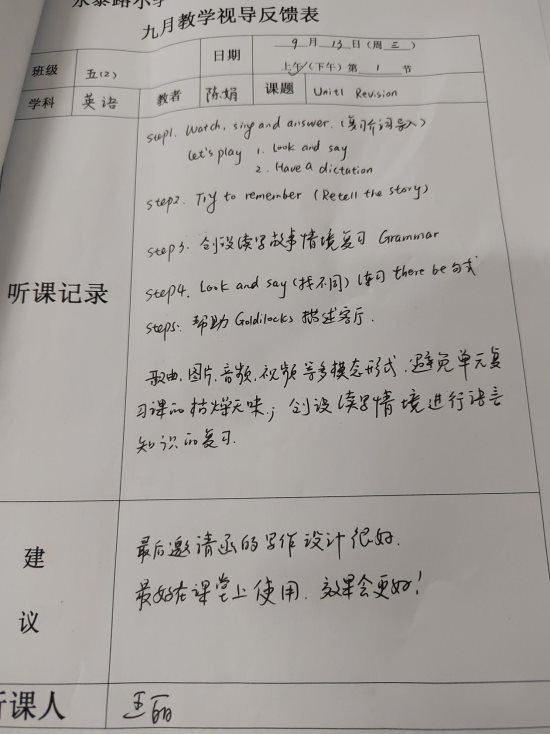 永泰路小学
九月教学视导反馈表
班级 五(2) 日期 9月13日(周三)
上午/(下午)第1节
学科 英语 教者 陈娟 课题 Unit1 Revision
听课记录
step1. Watch, sing and answer. (复习介词导入)
let's play 1. look and say
2. Have a dictation
step2. Try to remember (Retell the story)
step3. 创设续写故事情境复习 Grammar
step4. Look and say (找不同) 练习 there be 句式
step5. 帮助 Goldilocks 描述客厅.
歌曲、图片、音频、视频等多模态形式,避免单元复
习课的枯燥无味; 创设续写情境进行语言
知识的复习.
建议
最后邀请函的写作设计很好.
最好在课堂上使用, 效果会更好!
听课人 王丽